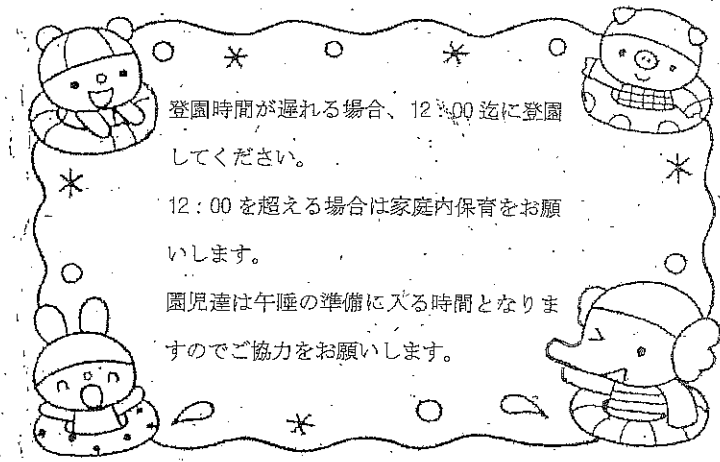 登園時間が遅れる場合、12:00迄に登園
してください。
12:00を超える場合は家庭内保育をお願
いします。
園児達は午睡の準備に入る時間となりま
すのでご協力をお願いします。